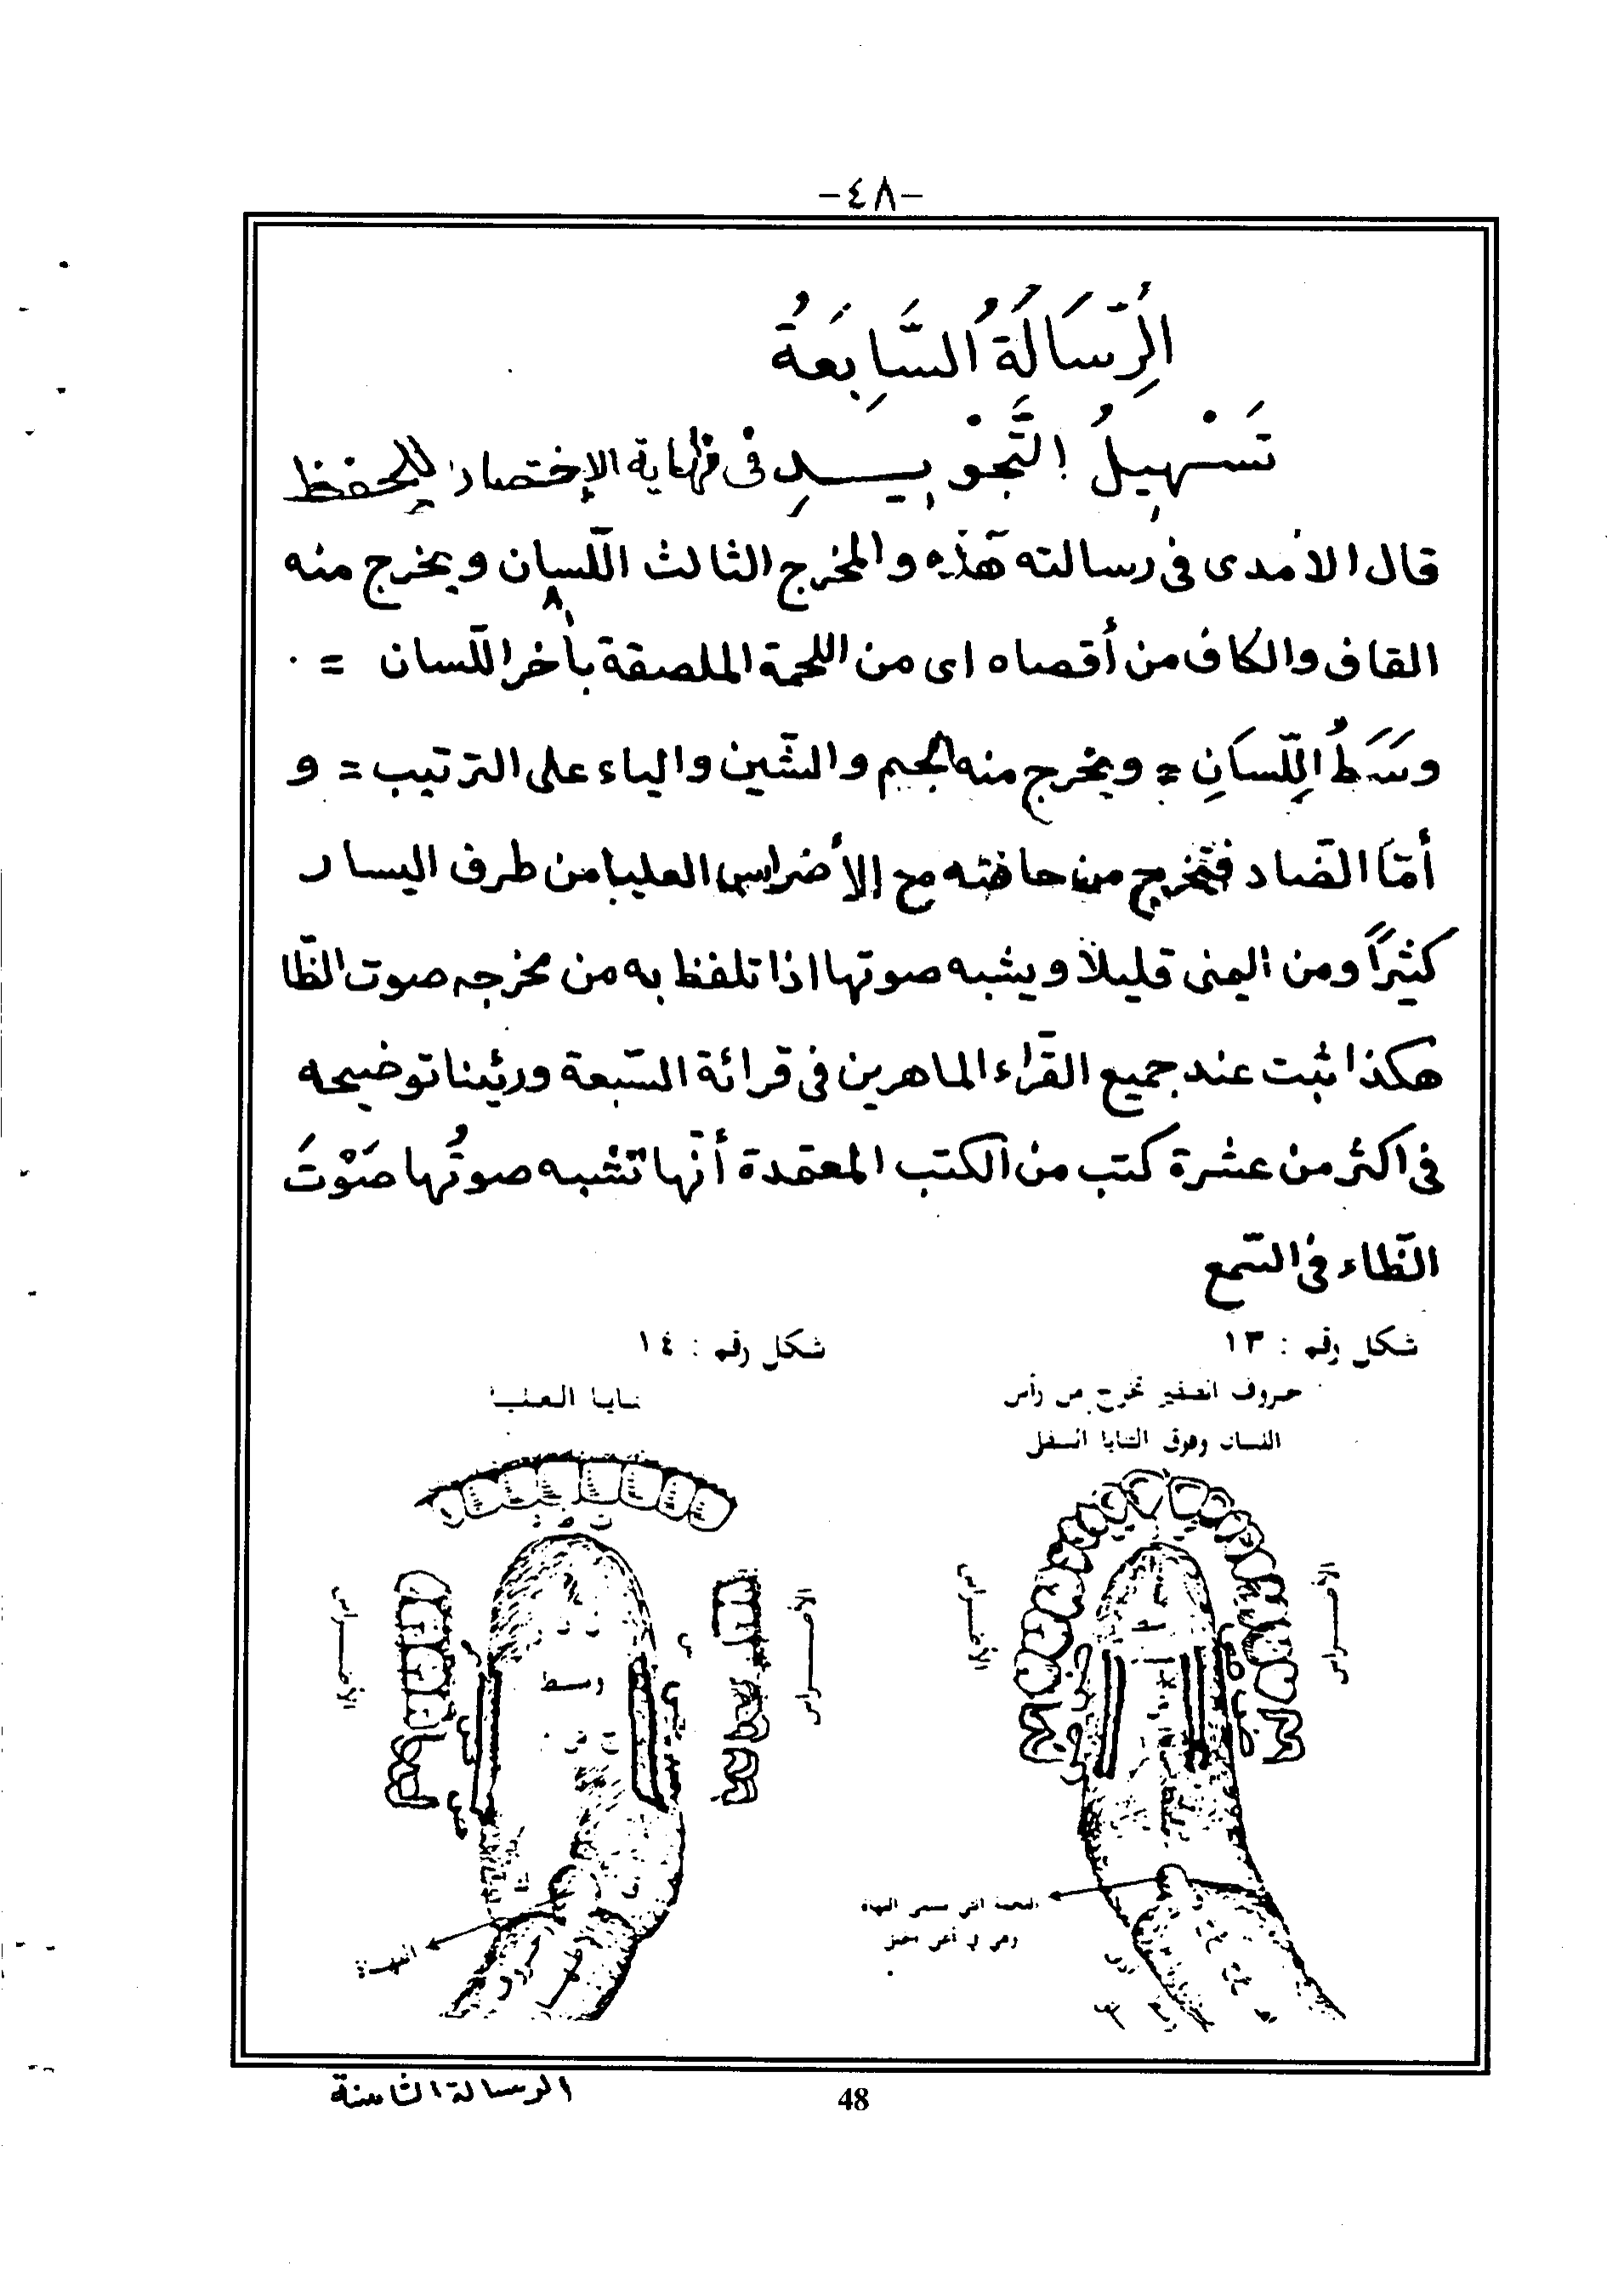 -٤٨-
الرِّسَالَةُ السَّابِعَةُ
تَسْهِيلُ التَّجْوِيدِ فى نهاية الإختصار للحفظ
قال الأمدى فى رسالته هذه والمخرج الثالث اللّسان ويخرج منه
القاف والكاف من أقصاه اى من اللحمة الملصقة بأخر اللّسان =
وَسَطُ اللِّسَانِ = ويخرج منه الجيم والشّين والياء على الترتيب = و
أمّا الضّاد فتخرج من حافته مع الأضراس العليا من طرف اليسار
كثيرًا ومن اليمنى قليلاً ويشبه صوتها اذا تلفظ به من مخرجه صوت الظّا
هكذا ثبت عند جميع القرّاء الماهرين فى قرائة السّبعة ورئينا توضيحه
فى اكثر من عشرة كتب من الكتب المعتمدة أنّها تشبه صوتُها صَوْتَ
الظّاء فى السّمع
شكل رقم : ١٣
حروف الصفير تخرج من رأس
اللسان وفوق الثنايا السفلى
الأضراس
الأضراس
شكل رقم : ١٤
ثنايا العليا
الأضراس
الأضراس
وسط
اللهاة
48
الرسالة الثامنة